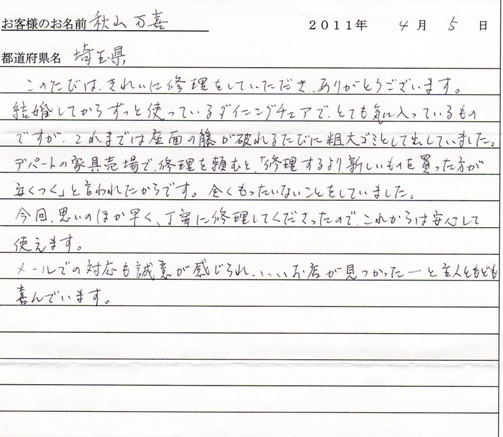 お客様のお名前 秋山万喜 2011年 4月 5日
都道府県名 埼玉県
このたびは、きれいに修理をしていただき、ありがとうございます。
結婚してからずっと使っているダイニングチェアで、とても気に入っているもの
ですが、これまでは座面の籐が破れるたびに粗大ゴミとして出していました。
デパートの家具売場で、修理を頼むと「修理するより新しいものを買った方が
安くつく」と言われたからです。全くもったいないことをしていました。
今回、思いのほか早く、丁寧に修理してくださったので、これからは安心して
使えます。
メールでの対応も誠意が感じられ、いいお店が見つかったーと主人ともども
喜んでいます。